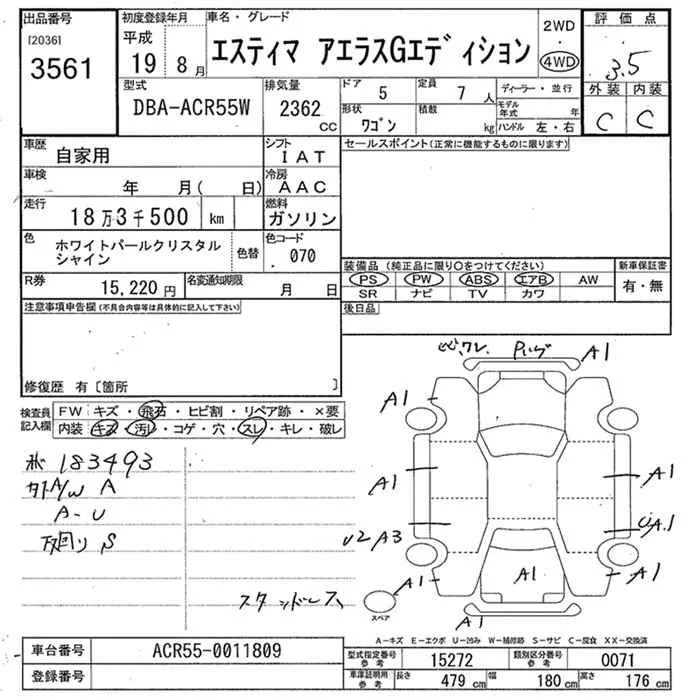 出品番号
[2036]
3561
初度登録年月
平成
19年8月
車名・グレード
エスティマ アエラスGエディション
2WD
・
4WD
評価点
3.5
外装 内装
C C
型式
DBA-ACR55W
排気量
2362
CC
ドア
5
定員
7人
ディーラー・並行
形状
ワゴン
積載
kg
モデル年式 年
ハンドル 左・右
車歴
自家用
シフト
IAT
セールスポイント(正常に機能するものに限ります)
車検
年 月( 日)
冷房
AAC
走行
18万3千500
km
燃料
ガソリン
色
ホワイトパールクリスタル
シャイン
色替
色コード
070
装備品(純正品に限り○をつけてください)
PS PW ABS エアB AW
SR ナビ TV カワ
新車保証書
有・無
R券
15,220円
名変通知期限
月 日
後日品
注意事項申告欄(不具合内容等は具体的に記入して下さい)
修復歴 有〔箇所 〕
検査員
記入欄
FW キズ・飛石・ヒビ割・リペア跡・×要
内装 キズ・汚レ・コゲ・穴・スレ・キレ・破レ
183493
A/W A
A-U
下回り S
スタッドレス
A1
A1
A1
A1
A1
U2 A3
UA1
A1
A1
A1
A1
スペア
A-キズ E-エクボ U-凹み W-補修跡 S-サビ C-腐食 XX-交換済
車台番号
ACR55-0011809
登録番号
型式指定番号
参考
15272
類別区分番号
参考
0071
車庫証明用
参考
長さ 479 cm
幅 180 cm
高さ 176 cm